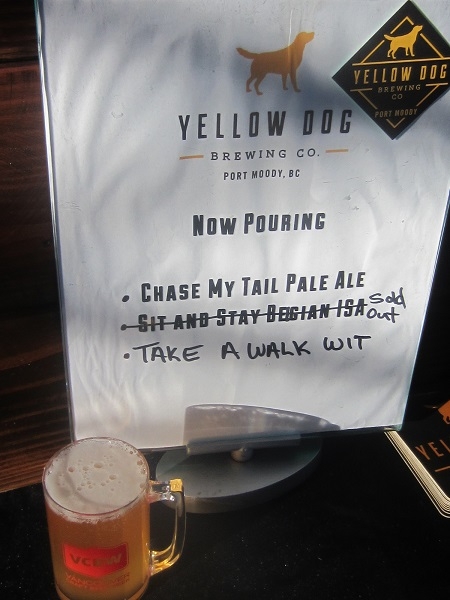 YELLOW DOG
BREWING CO.
PORT MOODY, BC
YELLOW DOG
BREWING
CO
PORT MOODY
NOW POURING
• CHASE MY TAIL PALE ALE
• SIT AND STAY BEGIAN ISA Sold Out
• TAKE A WALK WIT
YEL